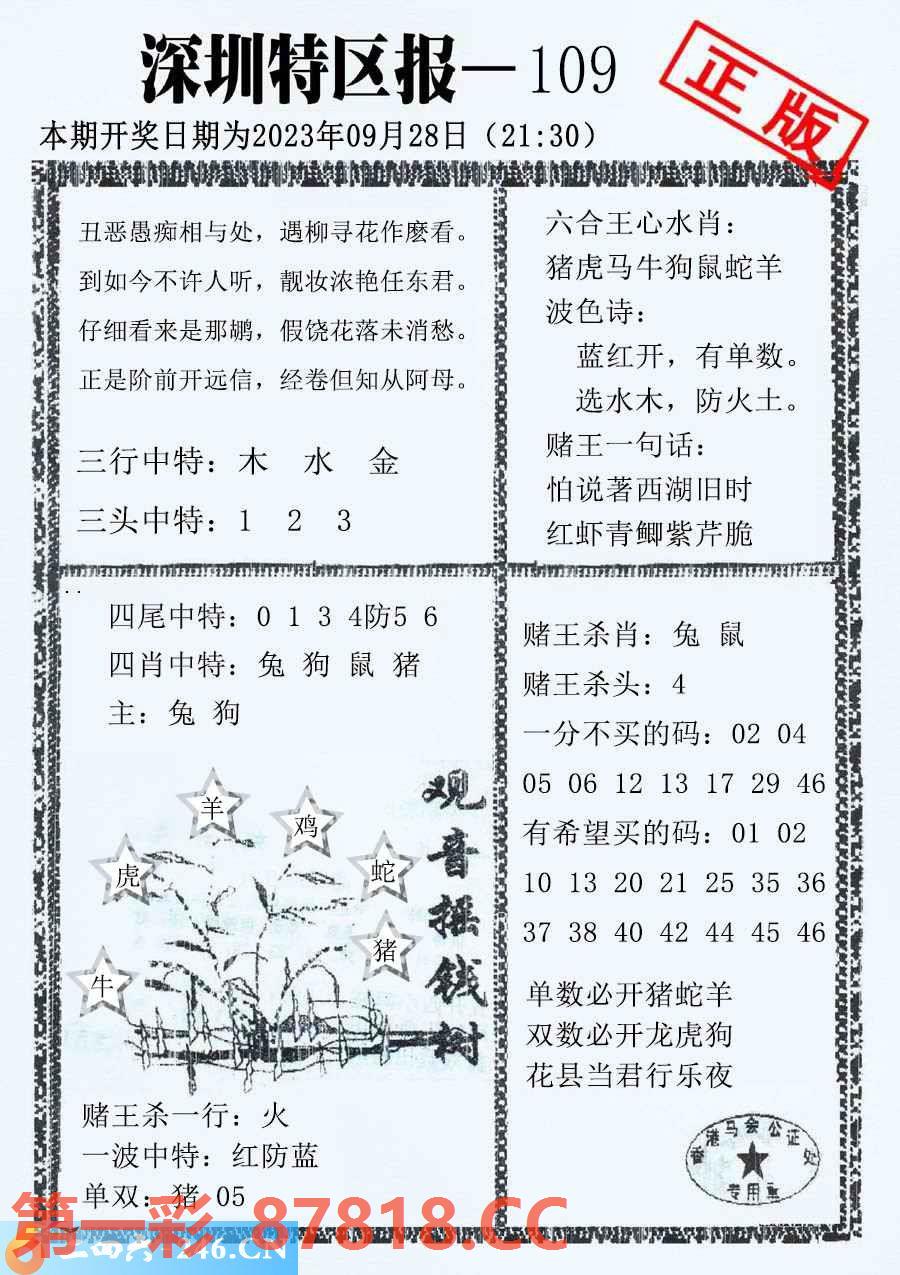 深圳特区报—109
正版
本期开奖日期为2023年09月28日（21:30）
丑恶愚痴相与处，遇柳寻花作麽看。
到如今不许人听，靓妆浓艳任东君。
仔细看来是那鹏，假饶花落未消愁。
正是阶前开远信，经卷但知从阿母。
三行中特：木 水 金
三头中特：1 2 3
六合王心水肖：
猪虎马牛狗鼠蛇羊
波色诗：
蓝红开，有单数。
选水木，防火土。
赌王一句话：
怕说著西湖旧时
红虾青鲫紫芹脆
四尾中特：0 1 3 4防5 6
四肖中特：兔 狗 鼠 猪
主：兔 狗
观音摇钱树
羊
鸡
虎
蛇
猪
牛
赌王杀一行：火
一波中特：红防蓝
单双：猪 05
赌王杀肖：兔 鼠
赌王杀头：4
一分不买的码：02 04
05 06 12 13 17 29 46
有希望买的码：01 02
10 13 20 21 25 35 36
37 38 40 42 44 45 46
单数必开猪蛇羊
双数必开龙虎狗
花县当君行乐夜
香港马会公证处
专用章
第一彩 87818.CC
246.CN